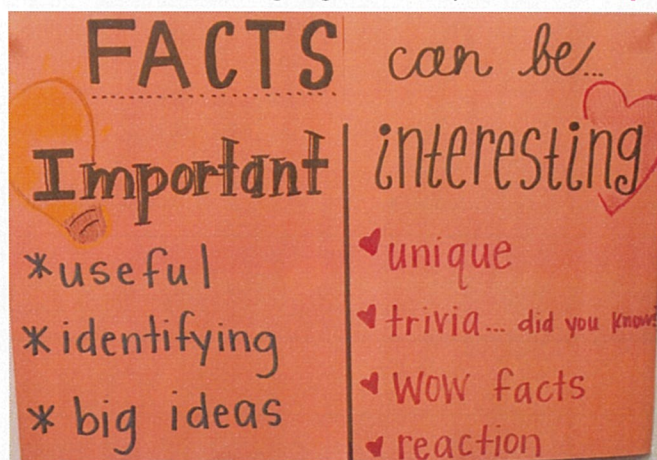 FACTS can be...
Important
* useful
* identifying
* big ideas
interesting
unique
trivia... did you know?
WOW facts
reaction